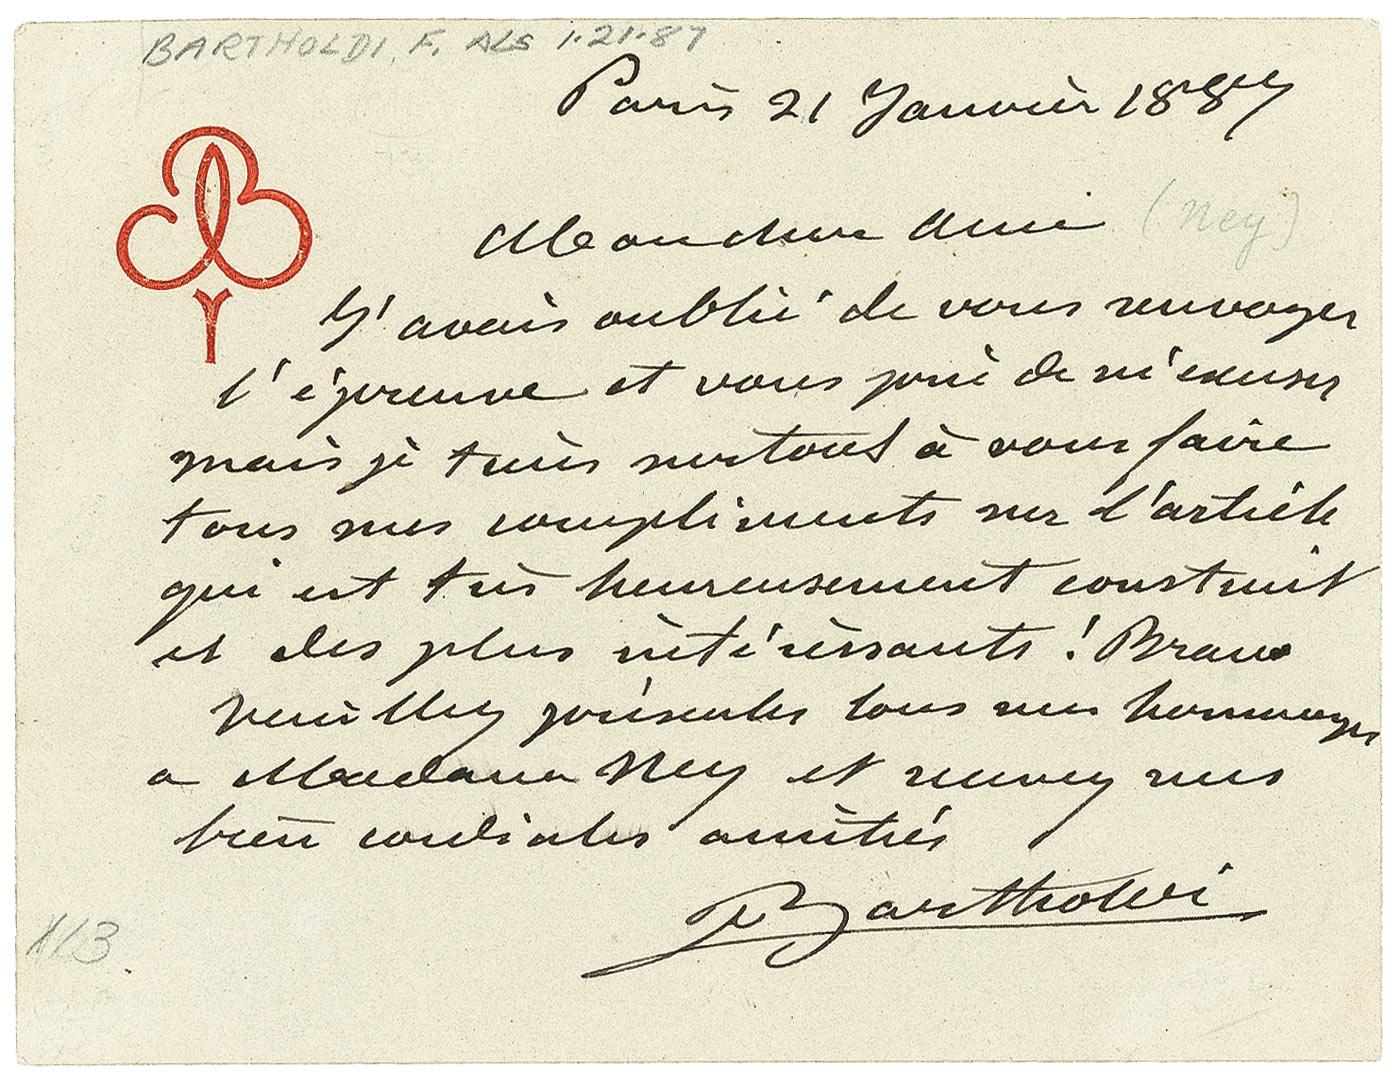 BARTHOLDI, F. ALS 1·21·87
Paris 21 Janvier 1887
Mon cher Ami (Ney)
J'avais oublié de vous renvoyer
l'épreuve et vous prie de m'excuser
mais je tiens surtout à vous faire
tous mes compliments sur l'article
qui est très heureusement construit
et des plus intéressants ! Bravo
Veuillez présenter tous mes hommages
a Madame Ney et recevez mes
bien cordiales amitiés
Bartholdi